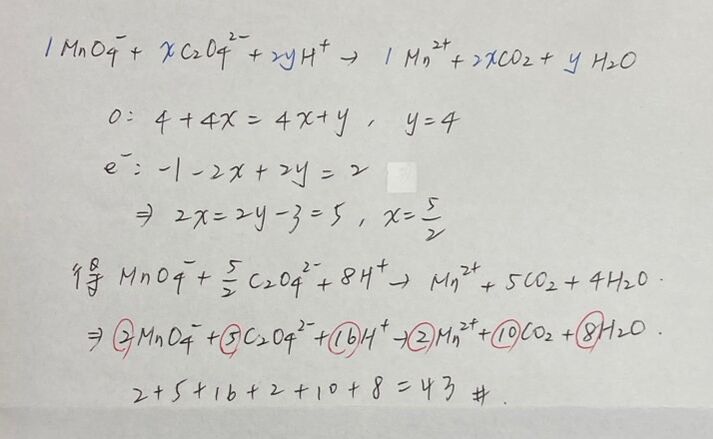 1 MnO4⁻ + xC2O4²⁻ + 2yH⁺ → 1 Mn²⁺ + 2xCO2 + yH2O
O: 4 + 4x = 4x + y , y = 4
e⁻: -1 - 2x + 2y = 2
⇒ 2x = 2y - 3 = 5 , x = 5/2
得 MnO4⁻ + 5/2 C2O4²⁻ + 8H⁺ → Mn²⁺ + 5CO2 + 4H2O .
⇒ 2MnO4⁻ + 5C2O4²⁻ + 16H⁺ → 2Mn²⁺ + 10CO2 + 8H2O .
2 + 5 + 16 + 2 + 10 + 8 = 43 #.